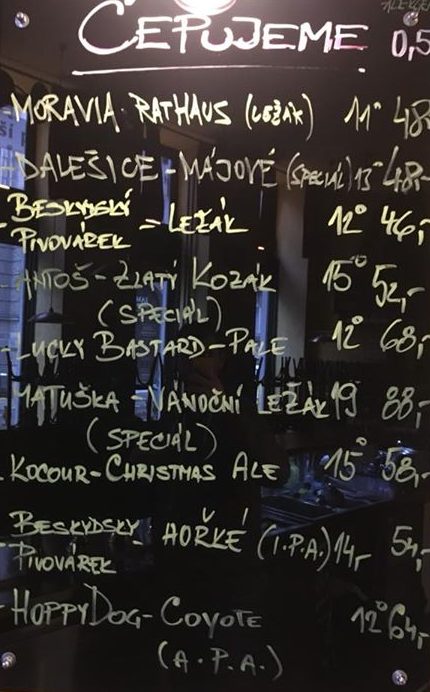 ČEPUJEME 0,5
MORAVIA RATHAUS (LEŽÁK) 11° 48,-
DALEŠICE - MÁJOVÉ (SPECIÁL) 13° 48,-
- BESKYDSKÝ PIVOVÁREK = LEŽÁK 12° 46,-
- ANTOŠ - ZLATÝ KOZÁK 15° 52,-
(SPECIÁL)
- LUCKY BASTARD - PALE 12° 68,-
MATUŠKA - VÁNOČNÍ LEŽÁK 19 88,-
(SPECIÁL)
- KOCOUR - CHRISTMAS ALE 15° 58,-
- BESKYDSKY PIVOVÁREK - HOŘKÉ (I.P.A.) 14,- 54,-
- HOPPYDOG - COYOTE 12° 64,-
(A.P.A.)